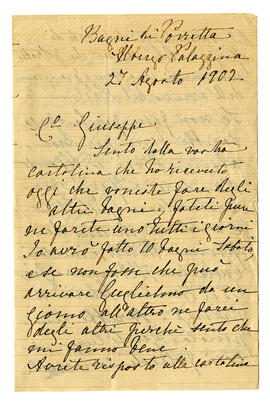 Bagni di Porretta
Albergo Palazzina
27 Agosto 1902
Co. Giuseppe
Sento dalla vostra
cartolina che ho ricevuto
oggi che voreste fare degli
altri bagni; fateli pure
ne farete uno tutti i giorni
Io avrò fatto 10 bagni Sabato
e se non fosse che può
arrivare Guglielmo da un
giorno all'altro ne farei
degli altri perchè sento che
mi fanno bene.
Avrete risposto alla cartolina